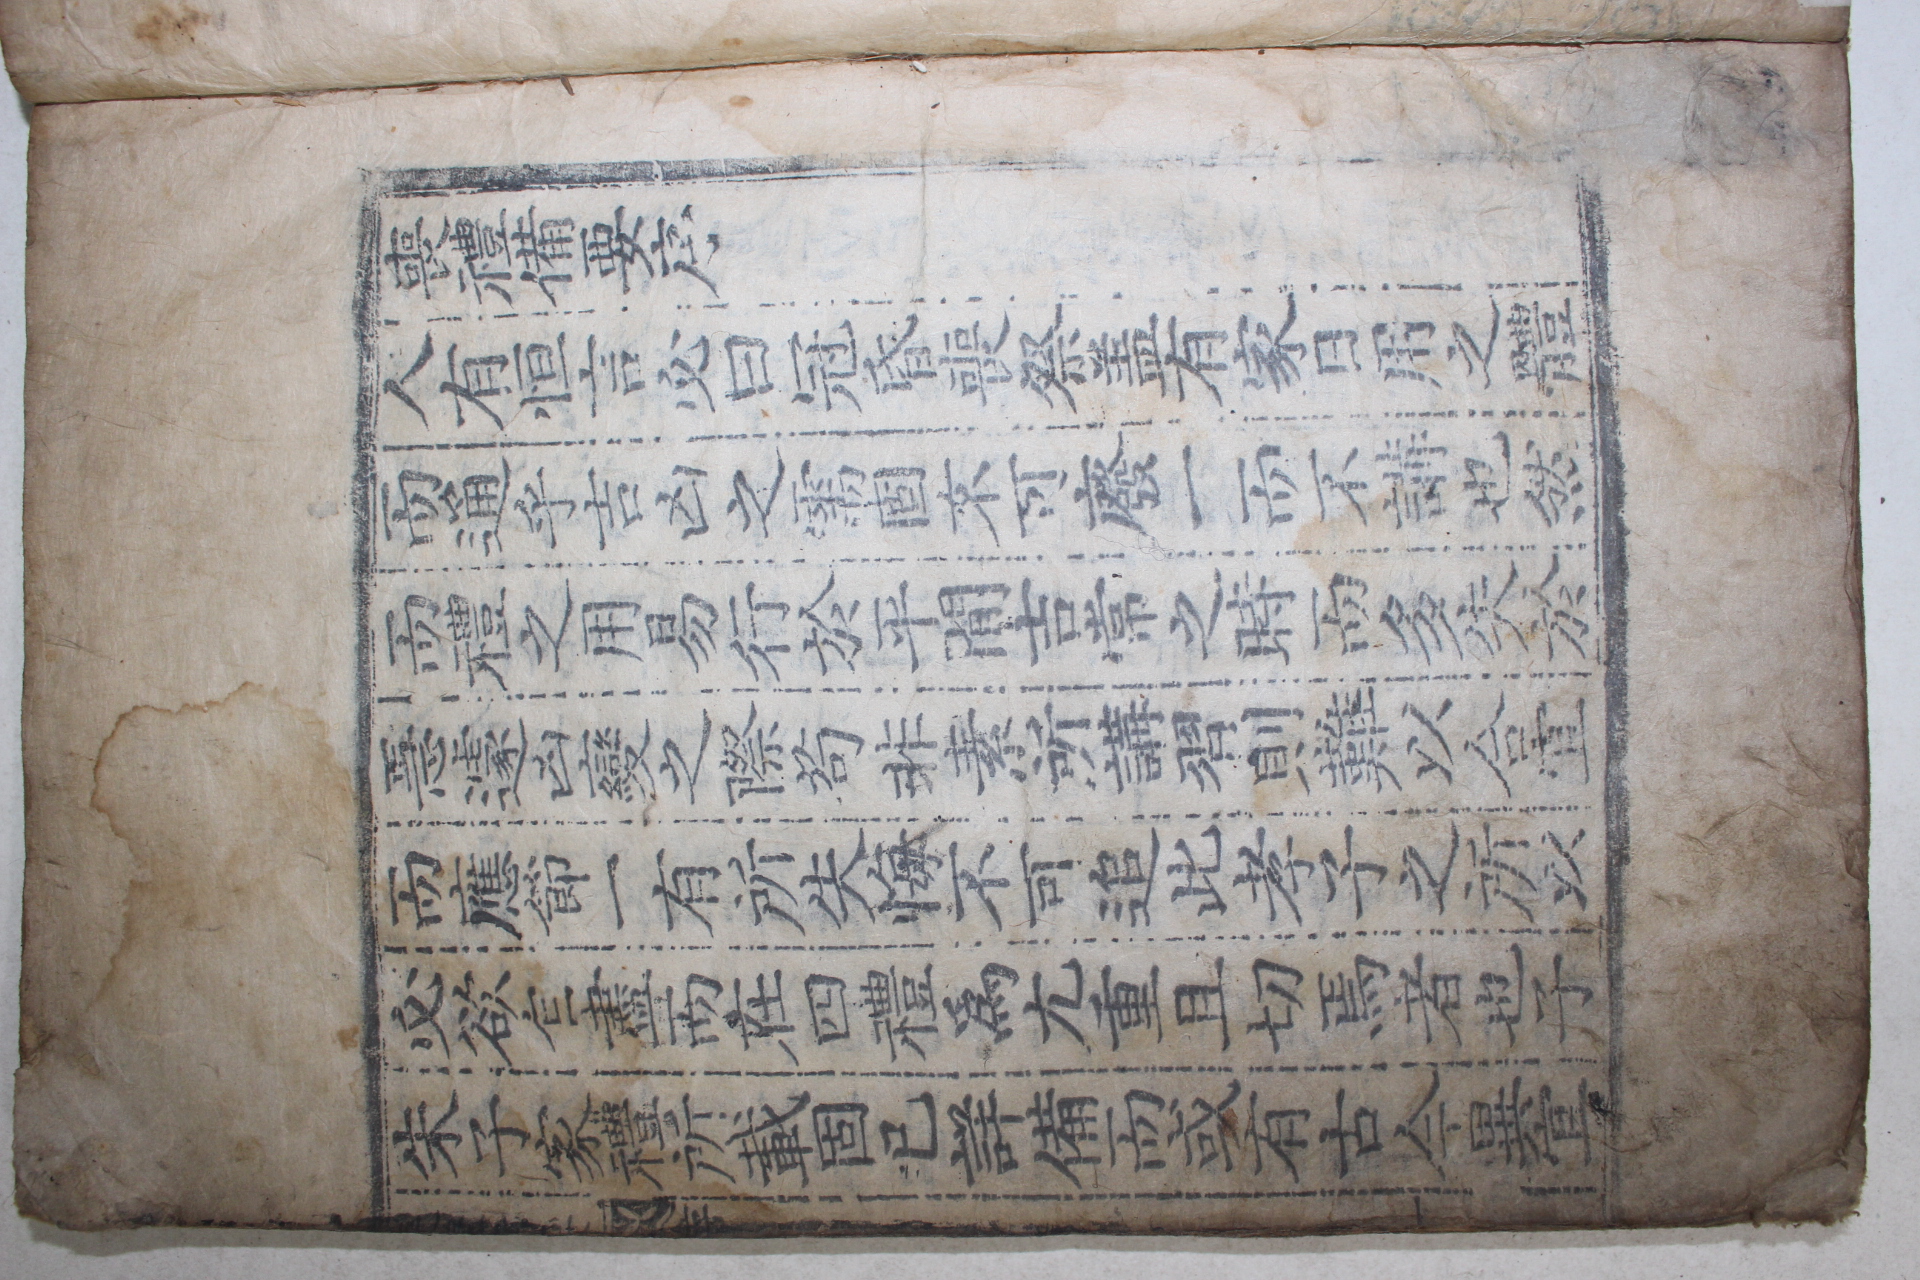 喪禮備要序
人有恒言必曰冠昏喪祭盖有家日用之體
而通乎吉凶之需固未可廢一而不講也然
而禮之用易行於平閒吉常之時而多失於
急遽凶變之際苟非素所講習則難以合宜
而應節一有所失悔不可追此孝子之所以
必欲盡而在四禮爲尤重且切焉者也子
朱子家禮所載固已詳備而或有古今異宜